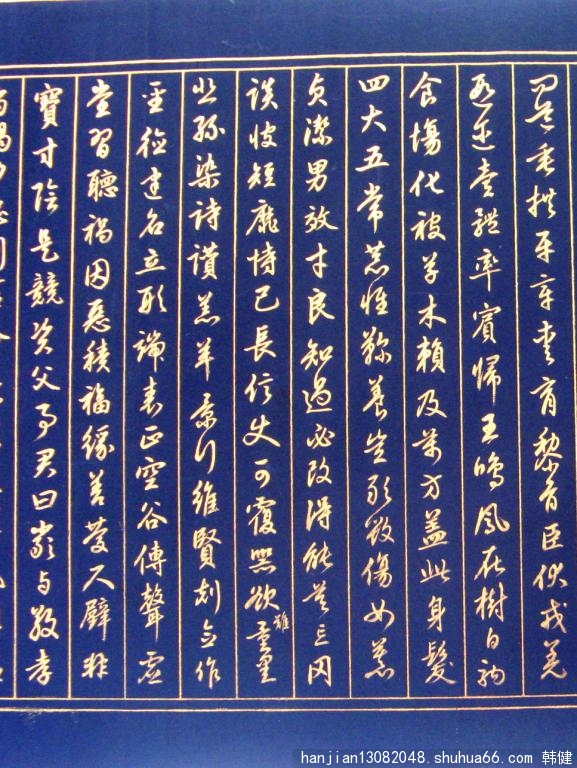 問道垂拱平章愛育黎首臣伏戎羌
遐迩壹體率賓歸王鳴鳳在樹白駒
食場化被草木賴及萬方蓋此身髮
四大五常恭惟鞠養豈敢毀傷女慕
貞潔男效才良知過必改得能莫忘罔
談彼短靡恃己長信使可覆器欲難量墨
悲絲染詩讚羔羊景行維賢剋念作
聖德建名立形端表正空谷傳聲虛
堂習聽禍因惡積福緣善慶尺璧非
寶寸陰是競資父事君曰嚴與敬孝
hanjian13082048.shuhua66.com 韩健